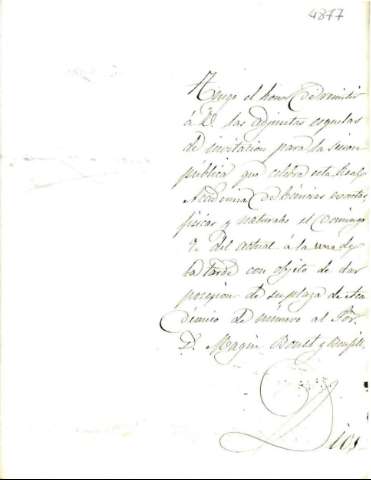 4877
Tengo el honor de remitir
á V. las adjuntas esquelas
de invitacion para la sesion
pública que celebra esta Real
Academia de Ciencias exactas,
físicas y naturales el Domingo
9. del actual á la una de
la tarde con objeto de dar
posesion de su plaza de Aca
démico de número al Sor.
D. Magin Bonet y Bonfill.
Dios